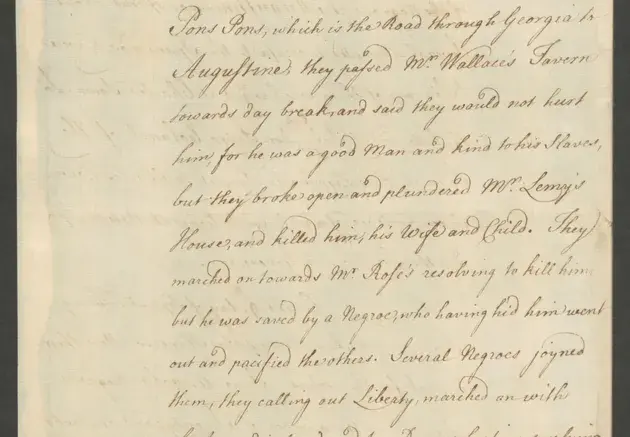 Pons Pons, which is the Road through Georgia to
Augustine, they passed Mr. Wallace's Tavern
towards day break, and said they would not hurt
him, for he was a good Man and kind to his Slaves,
but they broke open and plundered Mr. Lemy's
House, and killed him, his Wife and Child. They
marched on towards Mr. Rose's resolving to kill him,
but he was saved by a Negroe, who having hid him went
out and pacified the others. Several Negroes joyned
them, they calling out Liberty, marched on with